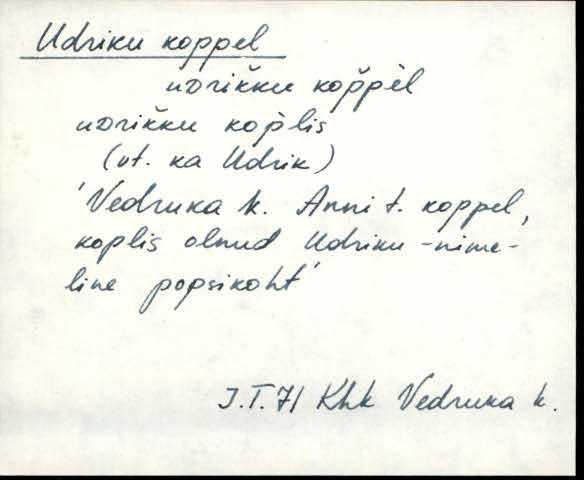 Udriku koppel
uᴅrik̆ku kop̆pèl
uᴅrik̆ku kop̀lis
(vt. ka Udrik)
'Vedruka k. Anni t. koppel,
koplis olnud Udriku-nime-
line popsikoht'
J.T.71 Khk Vedruka k.